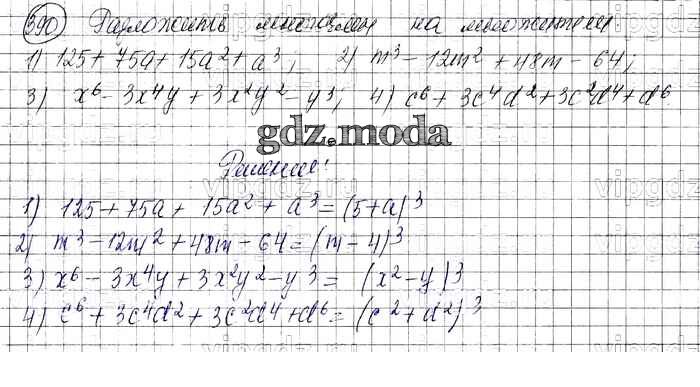 390 Разложить многочлен на множители
1) 125 + 75a + 15a² + a³; 2) m³ - 12m² + 48m - 64;
3) x⁶ - 3x⁴y + 3x²y² - y³; 4) c⁶ + 3c⁴d² + 3c²d⁴ + d⁶
gdz.moda
Решение:
1) 125 + 75a + 15a² + a³ = (5+a)³
2) m³ - 12m² + 48m - 64 = (m - 4)³
3) x⁶ - 3x⁴y + 3x²y² - y³ = (x² - y)³
4) c⁶ + 3c⁴d² + 3c²d⁴ + d⁶ = (c² + d²)³